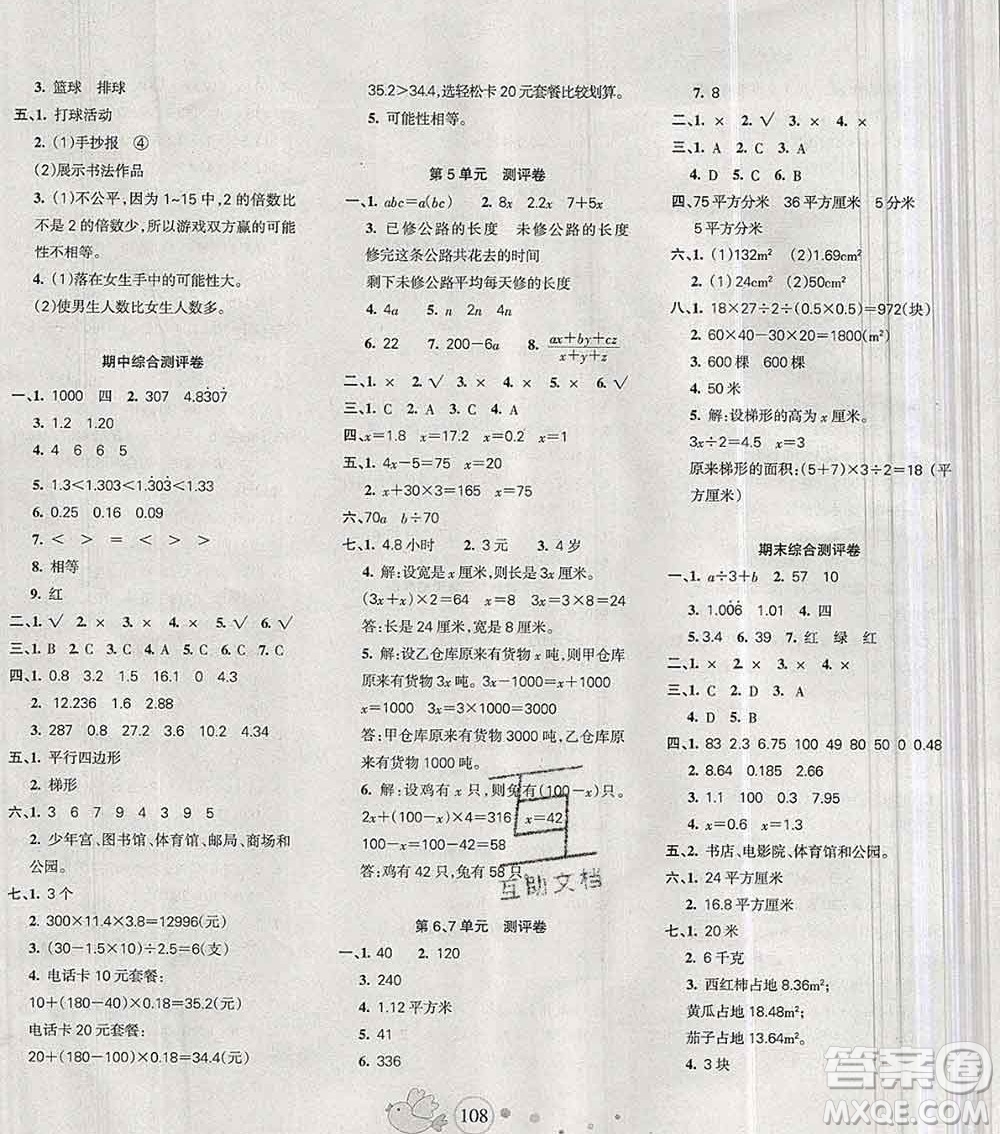 3. 篮球 排球
五、1. 打球活动
2. (1)手抄报 ④
(2)展示书法作品
3. (1)不公平,因为 1~15 中,2 的倍数比
不是 2 的倍数少,所以游戏双方赢的可能
性不相等。
4. (1)落在女生手中的可能性大。
(2)使男生人数比女生人数多。
期中综合测评卷
一、1. 1000 四 2. 307 4.8̇307̇
3. 1.2 1.20
4. 4 6 6 5
5. 1.3<1.303<1.3̇03̇<1.33
6. 0.25 0.16 0.09
7. < > = < > >
8. 相等
9. 红
二、1. √ 2. × 3. × 4. × 5. √ 6. √
三、1. B 2. C 3. C 4. A 5. B 6. C 7. C
四、1. 0.8 3.4 1.25 16 0 4.3
2. 12.236 1.6 2.88
3. 287 0.81 27.2 39 10 4
五、1. 平行四边形
2. 梯形
六、1. 3 6 7 9 4 3 9 5
2. 少年宫、图书馆、体育馆、邮局、商场和
公园。
七、1. 3 个
2. 300×11.4×3.8=12996(元)
3. (30-1.5×10)÷2.5=6(元)
4. 电话卡 10 元套餐:
10+(180-40)×0.18=35.2(元)
电话卡 20 元套餐:
20+(180-100)×0.18=34.4(元)
35.2>34.4,选轻松卡 20 元套餐比较划算。
5. 可能性相等。
第 5 单元 测评卷
一、1. abc=a(bc) 2. 8x 2.2x 7+5x
3. 已修公路的长度 未修公路的长度
修完这条公路共花去的时间
剩下未修公路平均每天修的长度
4. 4a 5. n 2n 4n
6. 22 7. 200-6a 8. (ax+by+cz)/(x+y+z)
二、1. × 2. √ 3. × 4. × 5. × 6. √
三、1. C 2. C 3. A 4. A
四、x=1.8 x=17.2 x=0.2 x=1
五、1. 4x-20=60 x=20
2. x+30×3=165 x=75
六、70a b÷70
七、1. 4.8 小时 2. 3 元 3. 4 岁
4. 解:设宽是 x 厘米,则长是 3x 厘米。
(3x+x)×2=64 x=8 3x=24
答:长是 24 厘米,宽是 8 厘米。
5. 解:设乙仓库原来有货物 x 吨,则甲仓库
原来有货物 3x 吨。3x-1000=x+1000
x=1000 3x=3×1000=3000
答:甲仓库原来有货物 3000 吨,乙仓库原
来有货物 1000 吨。
6. 解:设鸡有 x 只,则兔有(100-x)只。
2x+(100-x)×4=316 x=42
100-x=100-42=58
答:鸡有 42 只,兔有 58 只。
第 6、7 单元 测评卷
一、1. 40 2. 120
3. 240
4. 1.12 平方米
5. 41
6. 336
7. 8
二、1. × 2. √ 3. × 4. ×
三、1. A 2. C 3. A
4. D 5. A
四、75 平方分米 36 平方厘米 5 分米
5 平方分米
六、1. (1)132m² (2)1.69cm²
2. (1)24cm² (2)50cm²
八、1. 18×27÷2÷(0.5×0.5)=972(块)
2. 60×40-30×20=1800(m²)
3. 600 棵 600 棵
4. 50 米
5. 解:设梯形的高为 x 厘米。
3x÷2=4.5 x=3
原来梯形的面积:(5+7)×3÷2=18(平
方厘米)
期末综合测评卷
一、1. a÷3+b 2. 57 10
3. 1.0̇06̇ 1.01 4. 四
5. 3.4 6. 39 7. 红 绿 红
二、1. × 2. × 3. × 4. ×
三、1. C 2. D 3. A
4. D 5. B
四、1. 83 2.3 6.75 100 49 80 50 0 0.48
2. 8.64 0.185 2.66
3. 1.1 100 0.8
4. x=0.9 x=1.3
五、2. 书店、电影院、体育馆和公园。
六、1. 24 平方厘米
2. 16.8 平方厘米
七、1. 20 米
2. 6 千克
3. 西红柿占地 18.48m²;
黄瓜占地 18.48m²;
茄子占地 13.64m²。
4. 3 块
108
互助文档
答案圈
MXQE.COM